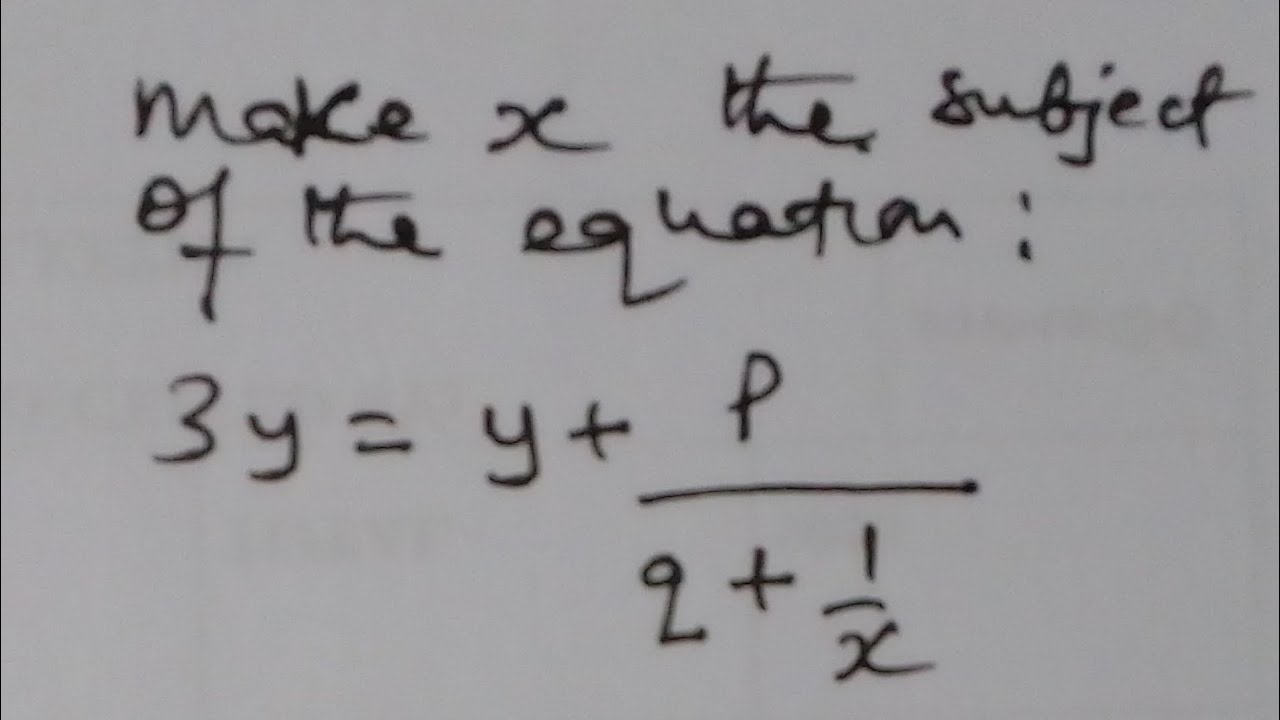 make x the subject
of the equation:
3y = y + p / (q + 1/x)